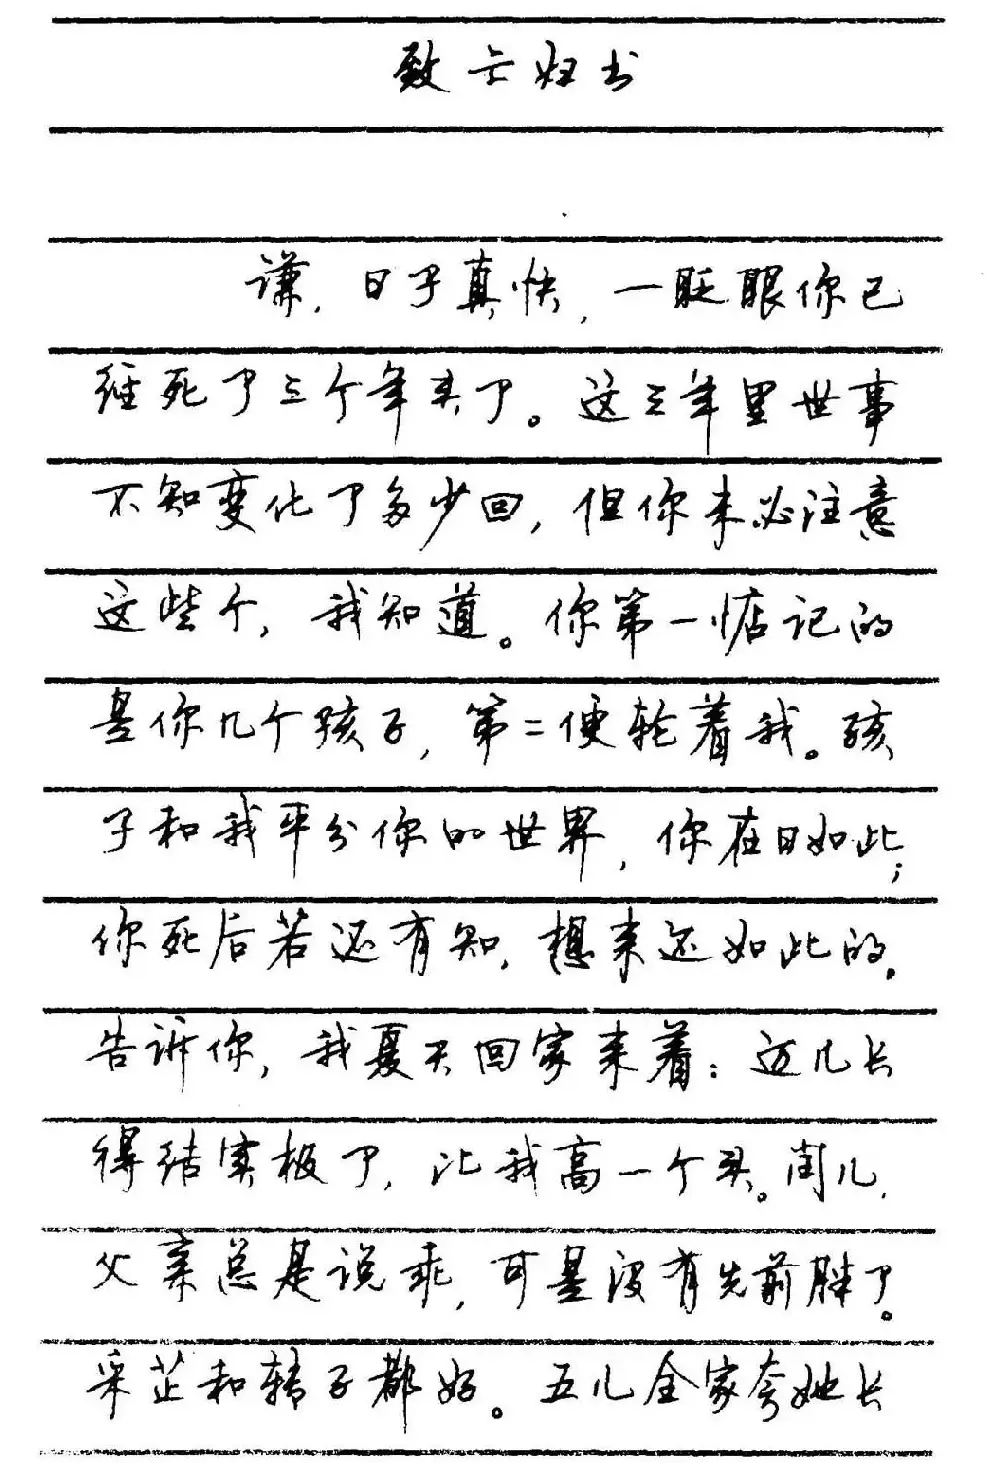 致亡妇书
谦，日子真快，一眨眼你已
经死了三个年头了。这三年里世事
不知变化了多少回，但你未必注意
这些个，我知道。你第一惦记的
是你几个孩子，第二便轮着我。孩
子和我平分你的世界，你在日如此；
你死后若还有知，想来还如此的。
告诉你，我夏天回家来着：迈儿长
得结实极了，比我高一个头。闰儿，
父亲总是说乖，可是没有先前胖了。
采芷和转子都好。五儿全家夸她长